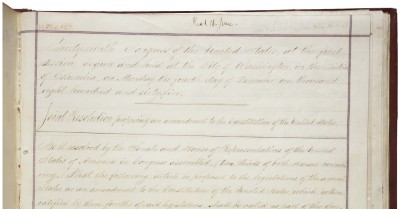 Recd 16 June
Thirty-ninth Congress of the United States, at the first
session, begun and held at the City of Washington, in the District
of Columbia, on Monday the fourth day of December one thousand
eight hundred and sixty-five.
Joint Resolution proposing an amendment to the Constitution of the United States.
Be it resolved by the Senate and House of Representatives of the United
States of America in Congress assembled, (two thirds of both Houses concur-
ring,) That the following article be proposed to the legislatures of the several
States as an amendment to the Constitution of the United States, which, when
ratified by three fourths of said legislatures, shall be valid as part of the